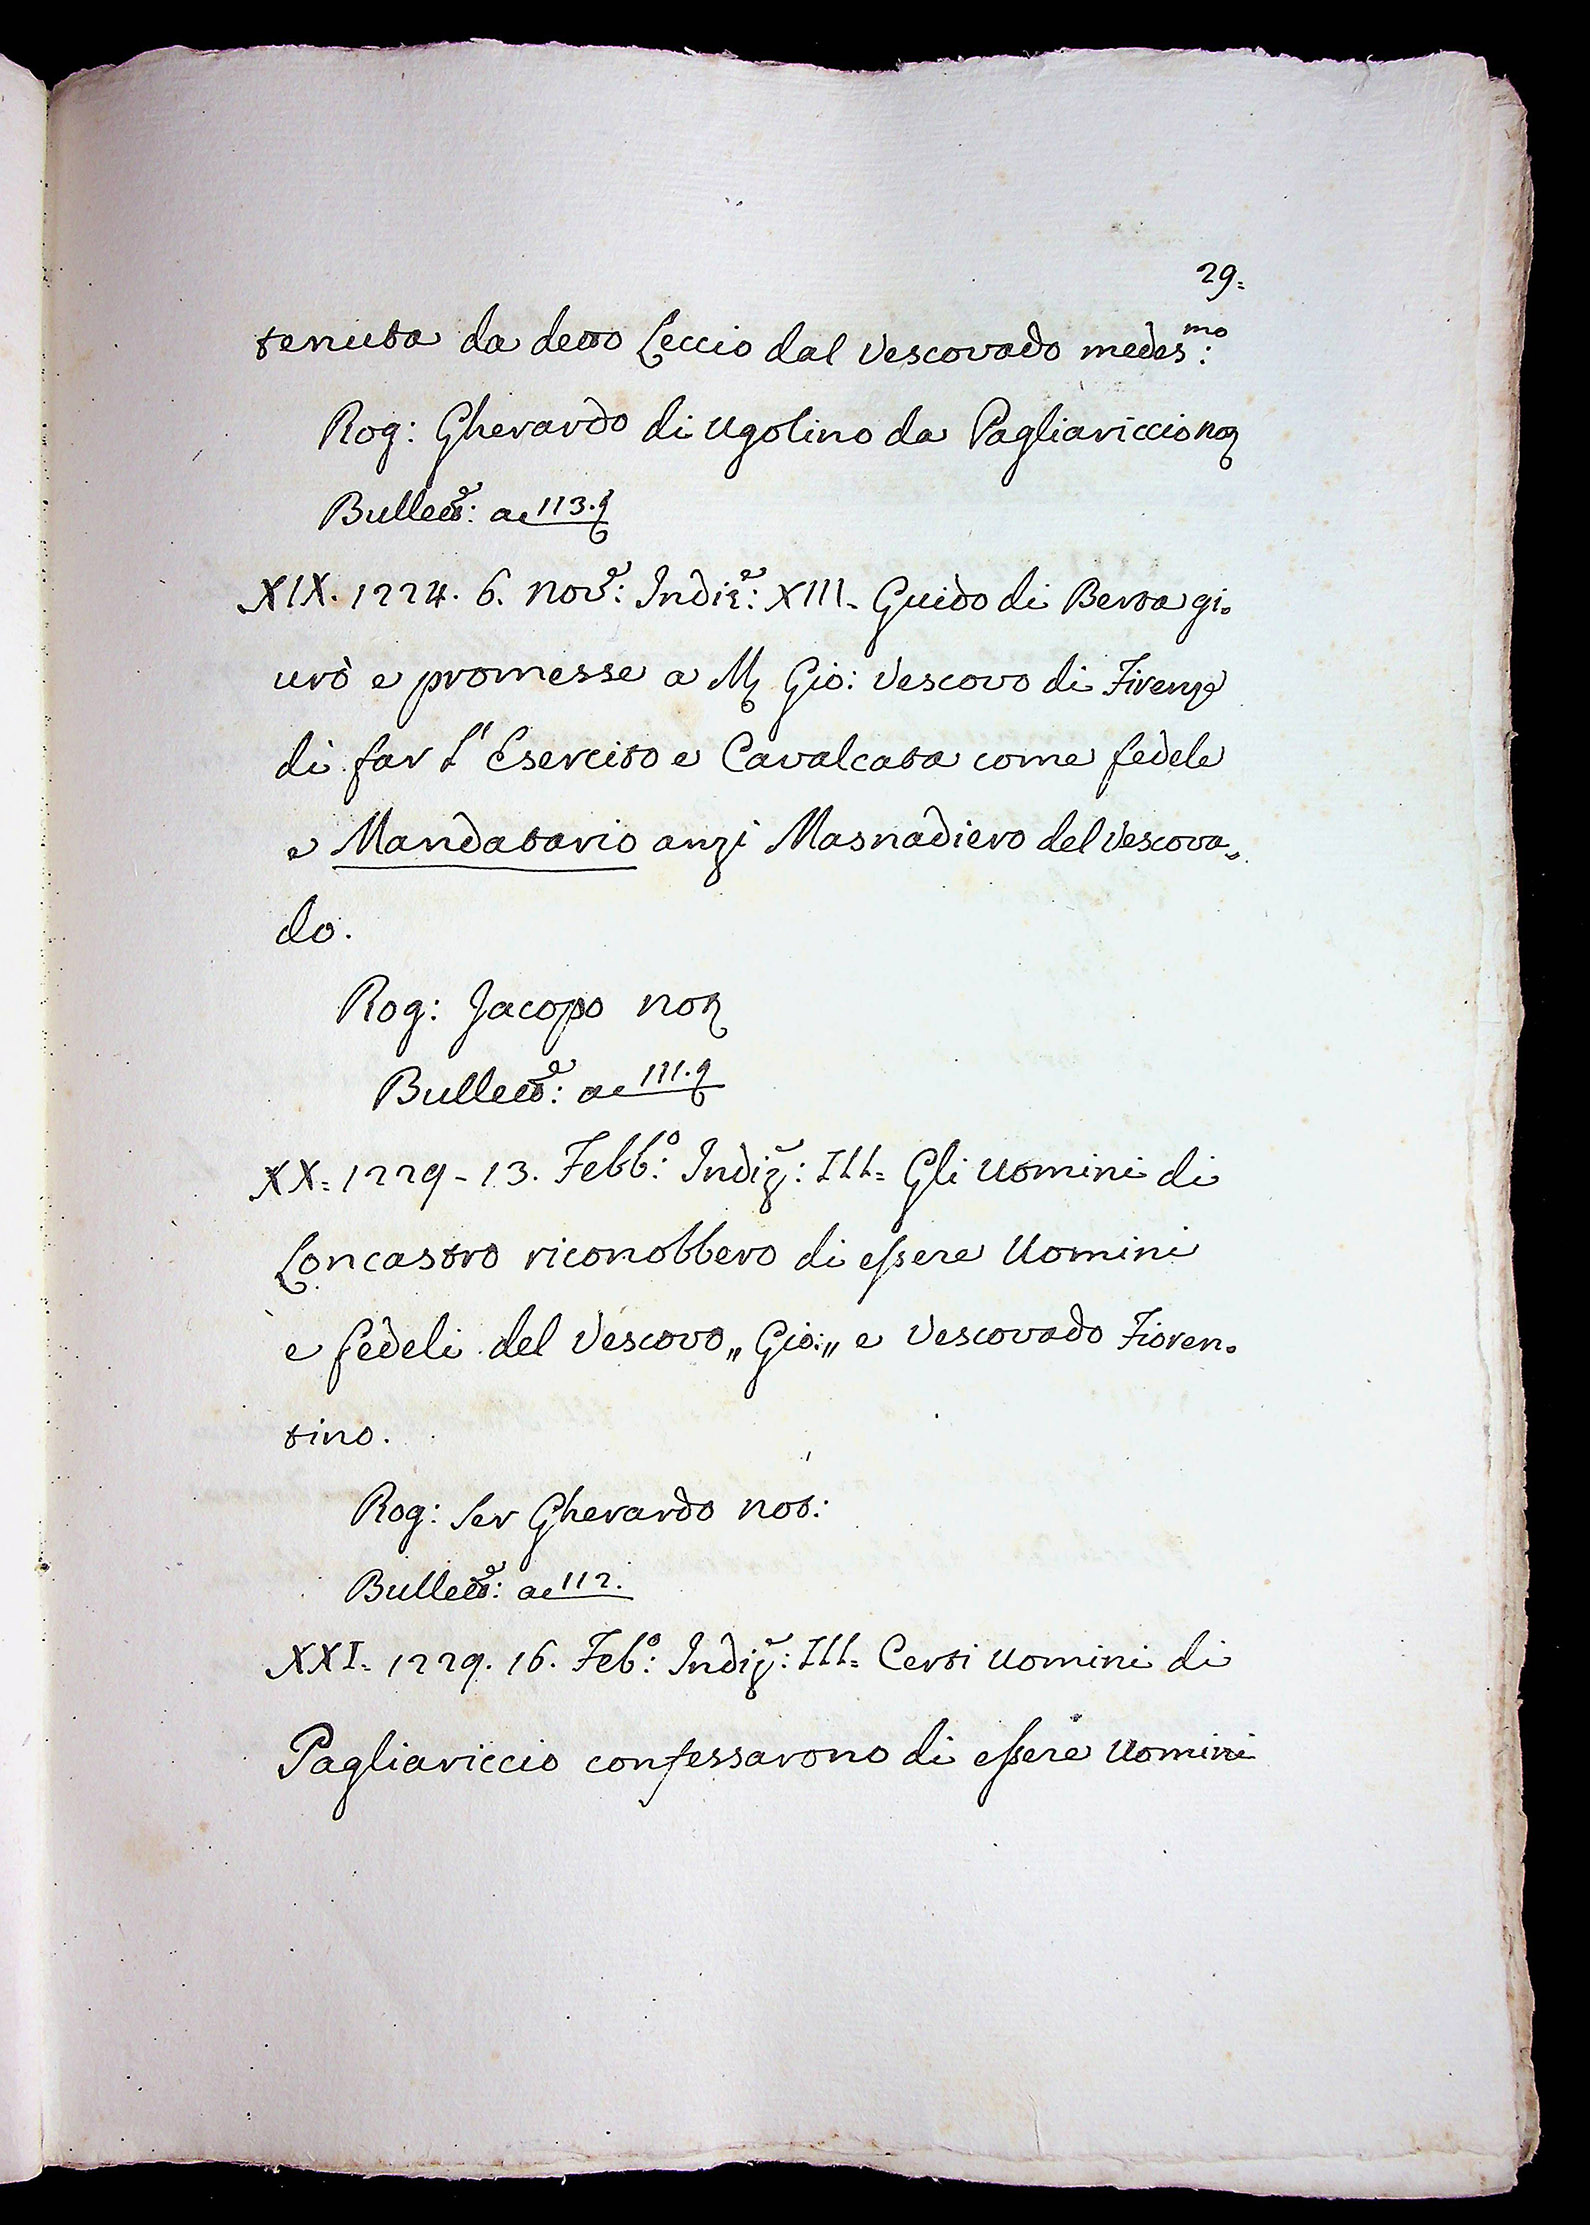 29.
tenuta da detto Leccio dal Vescovado medes:mo
Rog: Gherardo di Ugolino da Pagliariccio not
Bullett: a 113.
XIX. 1224. 6. Nov:e Indiz:e XIII. Guido di Berta gi-
urò e promesse a M Gio: Vescovo di Firenze
di far l'Esercito e Cavalcata come fedele
e Mandatario anzi Masnadiero del Vescova-
do.
Rog: Jacopo not
Bullett:e a 111.
XX. 1229 - 13. Febb:o Indiz:e III. Gli Uomini di
Loncastro riconobbero di essere Uomini
e fedeli del Vescovo „Gio:„ e Vescovado Fioren-
tino.
Rog: Ser Gherardo not:
Bullett:e a 112.
XXI. 1229. 16. Feb:o Indiz:e III. Certi Uomini di
Pagliariccio confessarono di essere Uomini